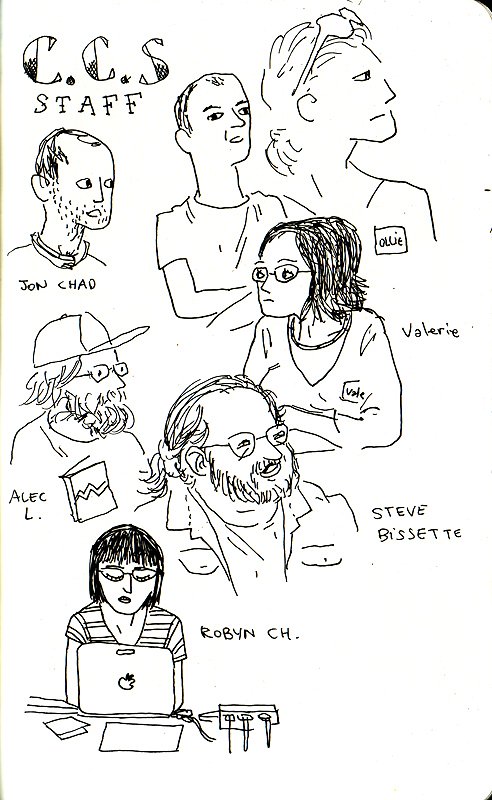 C.C.S
STAFF
JON CHAD
OLLIE
Valerie
Vale
ALEC
L.
STEVE
BISSETTE
ROBYN CH.